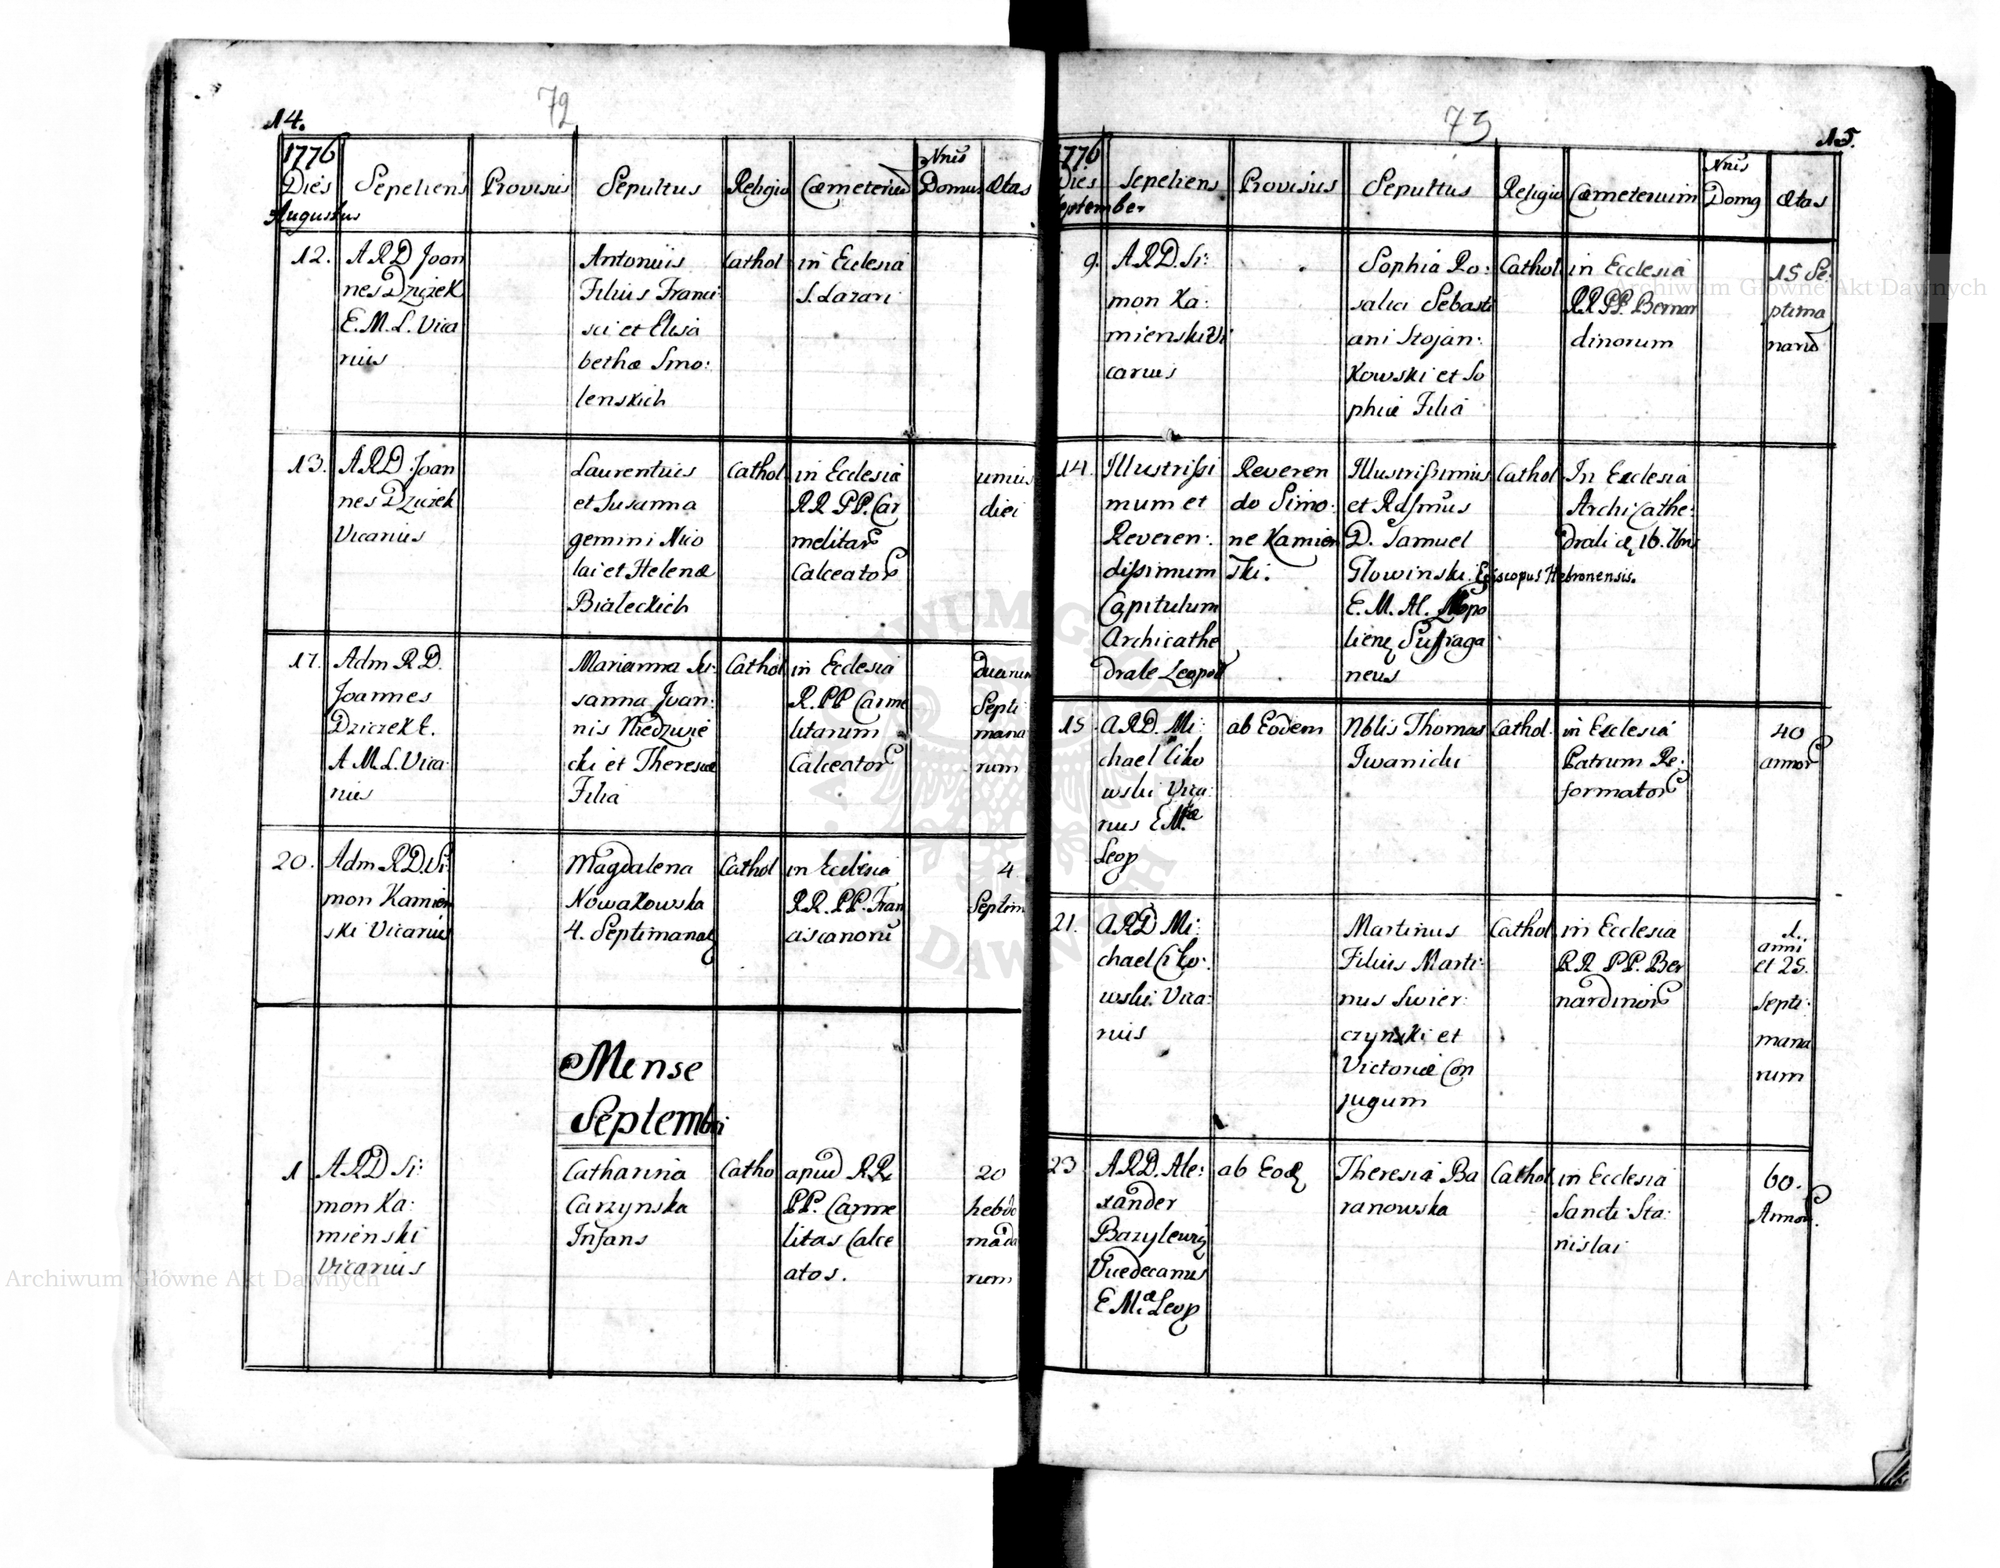 72
14.
1776
Dies
Augustus
Sepeliens
Provisus
Sepultus
Religio
Cæmeterium
Nrus
Domus
Ætas
12.
A R D Joan
nes Dziczek
E. M. L. Vica
rius
Antonius
Filius Franci:
sci et Elisa
bethæ Smo:
lenskich
Cathol
in Ecclesia
S. Lazari
13.
A R D Joan
nes Dziczek
Vicarius
Laurentius
et Susanna
gemini Nico
lai et Helenæ
Białeckich
Cathol
in Ecclesia
R R PP. Car
melitar
Calceator
unius
diei
17.
Adm R D.
Joannes
Dziczek E.
A M. L. Vica:
rius
Marianna Su:
sanna Joan:
nis Niedzwie
cki et Theresiæ
Filia
Cathol
in Ecclesia
R. PP Carme
litarum
Calceator
duarum
Septi
mana
rum
20.
Adm R D. Si:
mon Kamien
ski Vicarius
Magdalena
Nowakowska
4. Septimanal
Cathol
in Ecclesia
R R. PP. Fran
ciscanorū
4
Septim
Mense
Septembri
1
A R D Si:
mon Ka:
mienski
Vicarius
Catharina
Carzynska
Infans
Catho
apud R R
PP. Carme
litas Calce
atos.
20
hebdo
mada
rum
73
15.
1776
Dies
September
Sepeliens
Provisus
Sepultus
Religio
Cæmeterium
Nrus
Domq
Ætas
9.
A R D. Si:
mon Ka:
mienski Vi
carius
Sophia Ro:
salia Sebasti
ani Stojan:
kowski et So
phiæ Filia
Cathol
in Ecclesia
R R PP. Bernar
dinorum
15 Se:
ptima
narū
14.
Illustrissi
mum et
Reveren:
dissimum
Capitulum
Archicathe
drale Leopol
Reveren
do Simo:
ne Kamien
ski.
Illustrissimus
et Rdsmus
D. Samuel
Głowinski Episcopus Hebronensis.
E. M. Al. Leopo
lien Suffraga
neus
Cathol
In Ecclesia
Archi Cathe:
drali d 16. 7bris
15
A R D. Mi:
chael Ciko
wski Vica:
rius E Mæ
Leop
ab Eodem
Nblis Thomas
Iwanicki
Cathol.
in Ecclesia
Patrum Re:
formator
40
annor
21.
A R D Mi:
chael Ciko:
wski Vica:
rius
Martinus
Filius Marti:
nus Swier:
czynski et
Victoriæ Con
jugum
Cathol
in Ecclesia
R R PP. Ber
nardinor
1.
anni
et 25.
Septi:
mana
rum
23
A R D. Ale:
xander
Bazylewicz
Vicedecanus
E Mæ Leop
ab Eod
Theresia Ba
ranowska
Cathol
in Ecclesia
Sancti Sta:
nislai
60.
Annor.
Archiwum Główne Akt Dawnych
Archiwum Główne Akt Dawnych